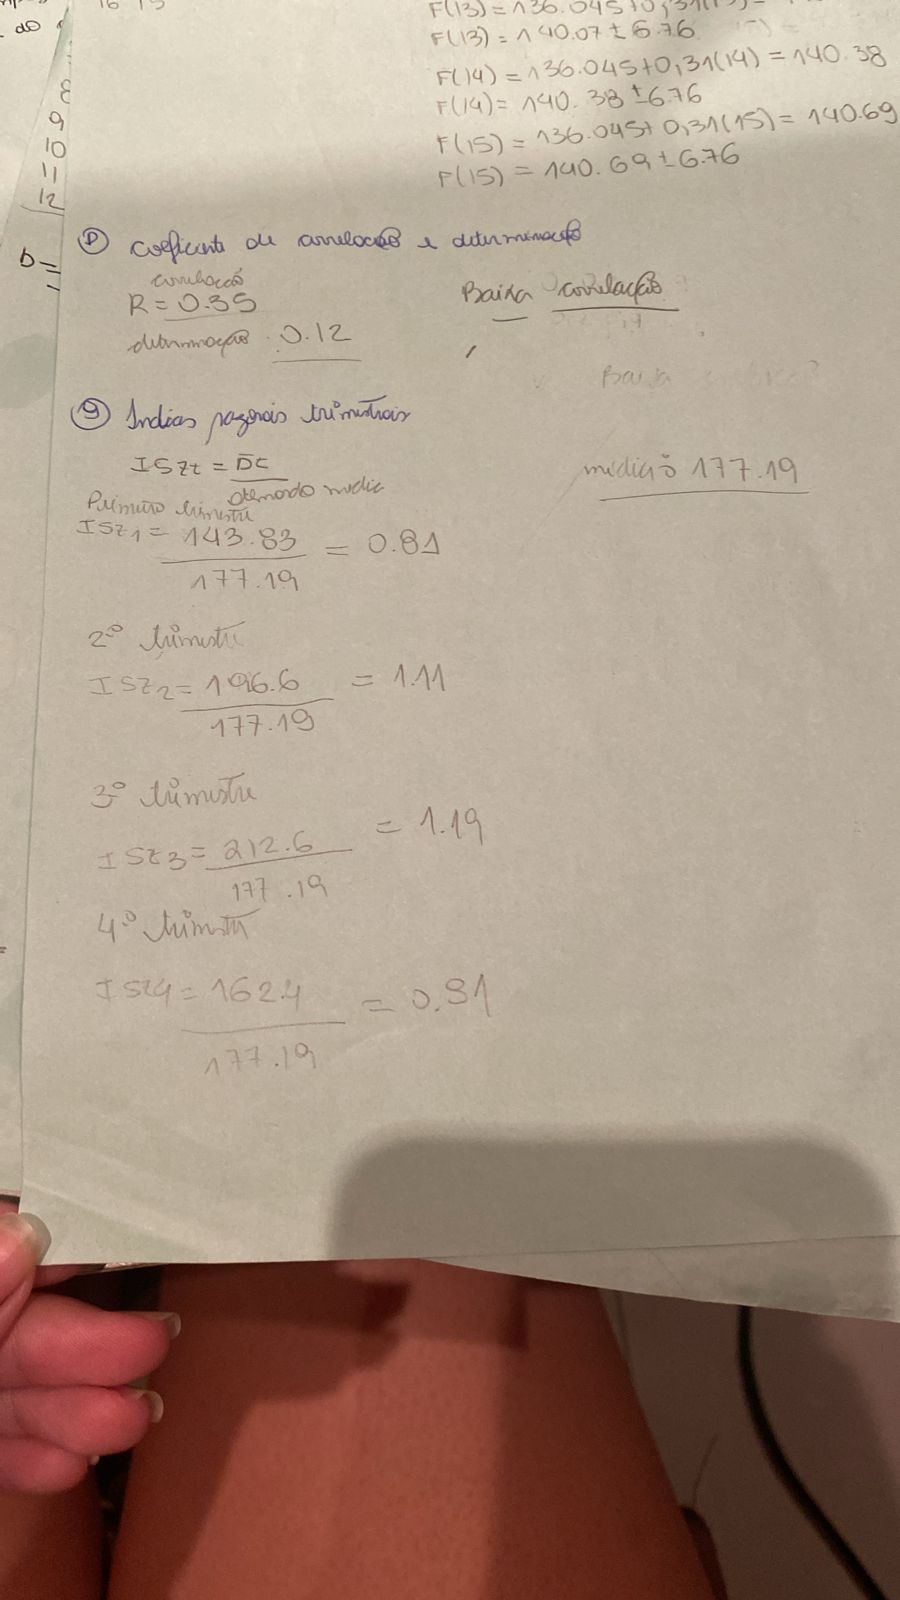 16 15
do
8
9
10
11
12
D=
F(13)=136.045+0,31(13)=
F(13)=140.07±6.76
F(14)=136.045+0,31(14)=140.38
F(14)=140.38±6.76
F(15)=136.045+0,31(15)=140.69
F(15)=140.69±6.76
coeficiente de correlação e determinação
correlação
R=0.35
determinação 0.12
Baixa correlação
Baixa
9 Indices sazonais trimestrais
ISZt = DC
demanda media
média 177.19
Primeiro trimestre
ISZ1= 143.83 = 0.81
177.19
2º trimestre
ISZ2= 196.6 = 1.11
177.19
3º trimestre
ISZ3= 212.6 = 1.19
177.19
4º trimestre
ISZ4= 162.4 = 0.91
177.19